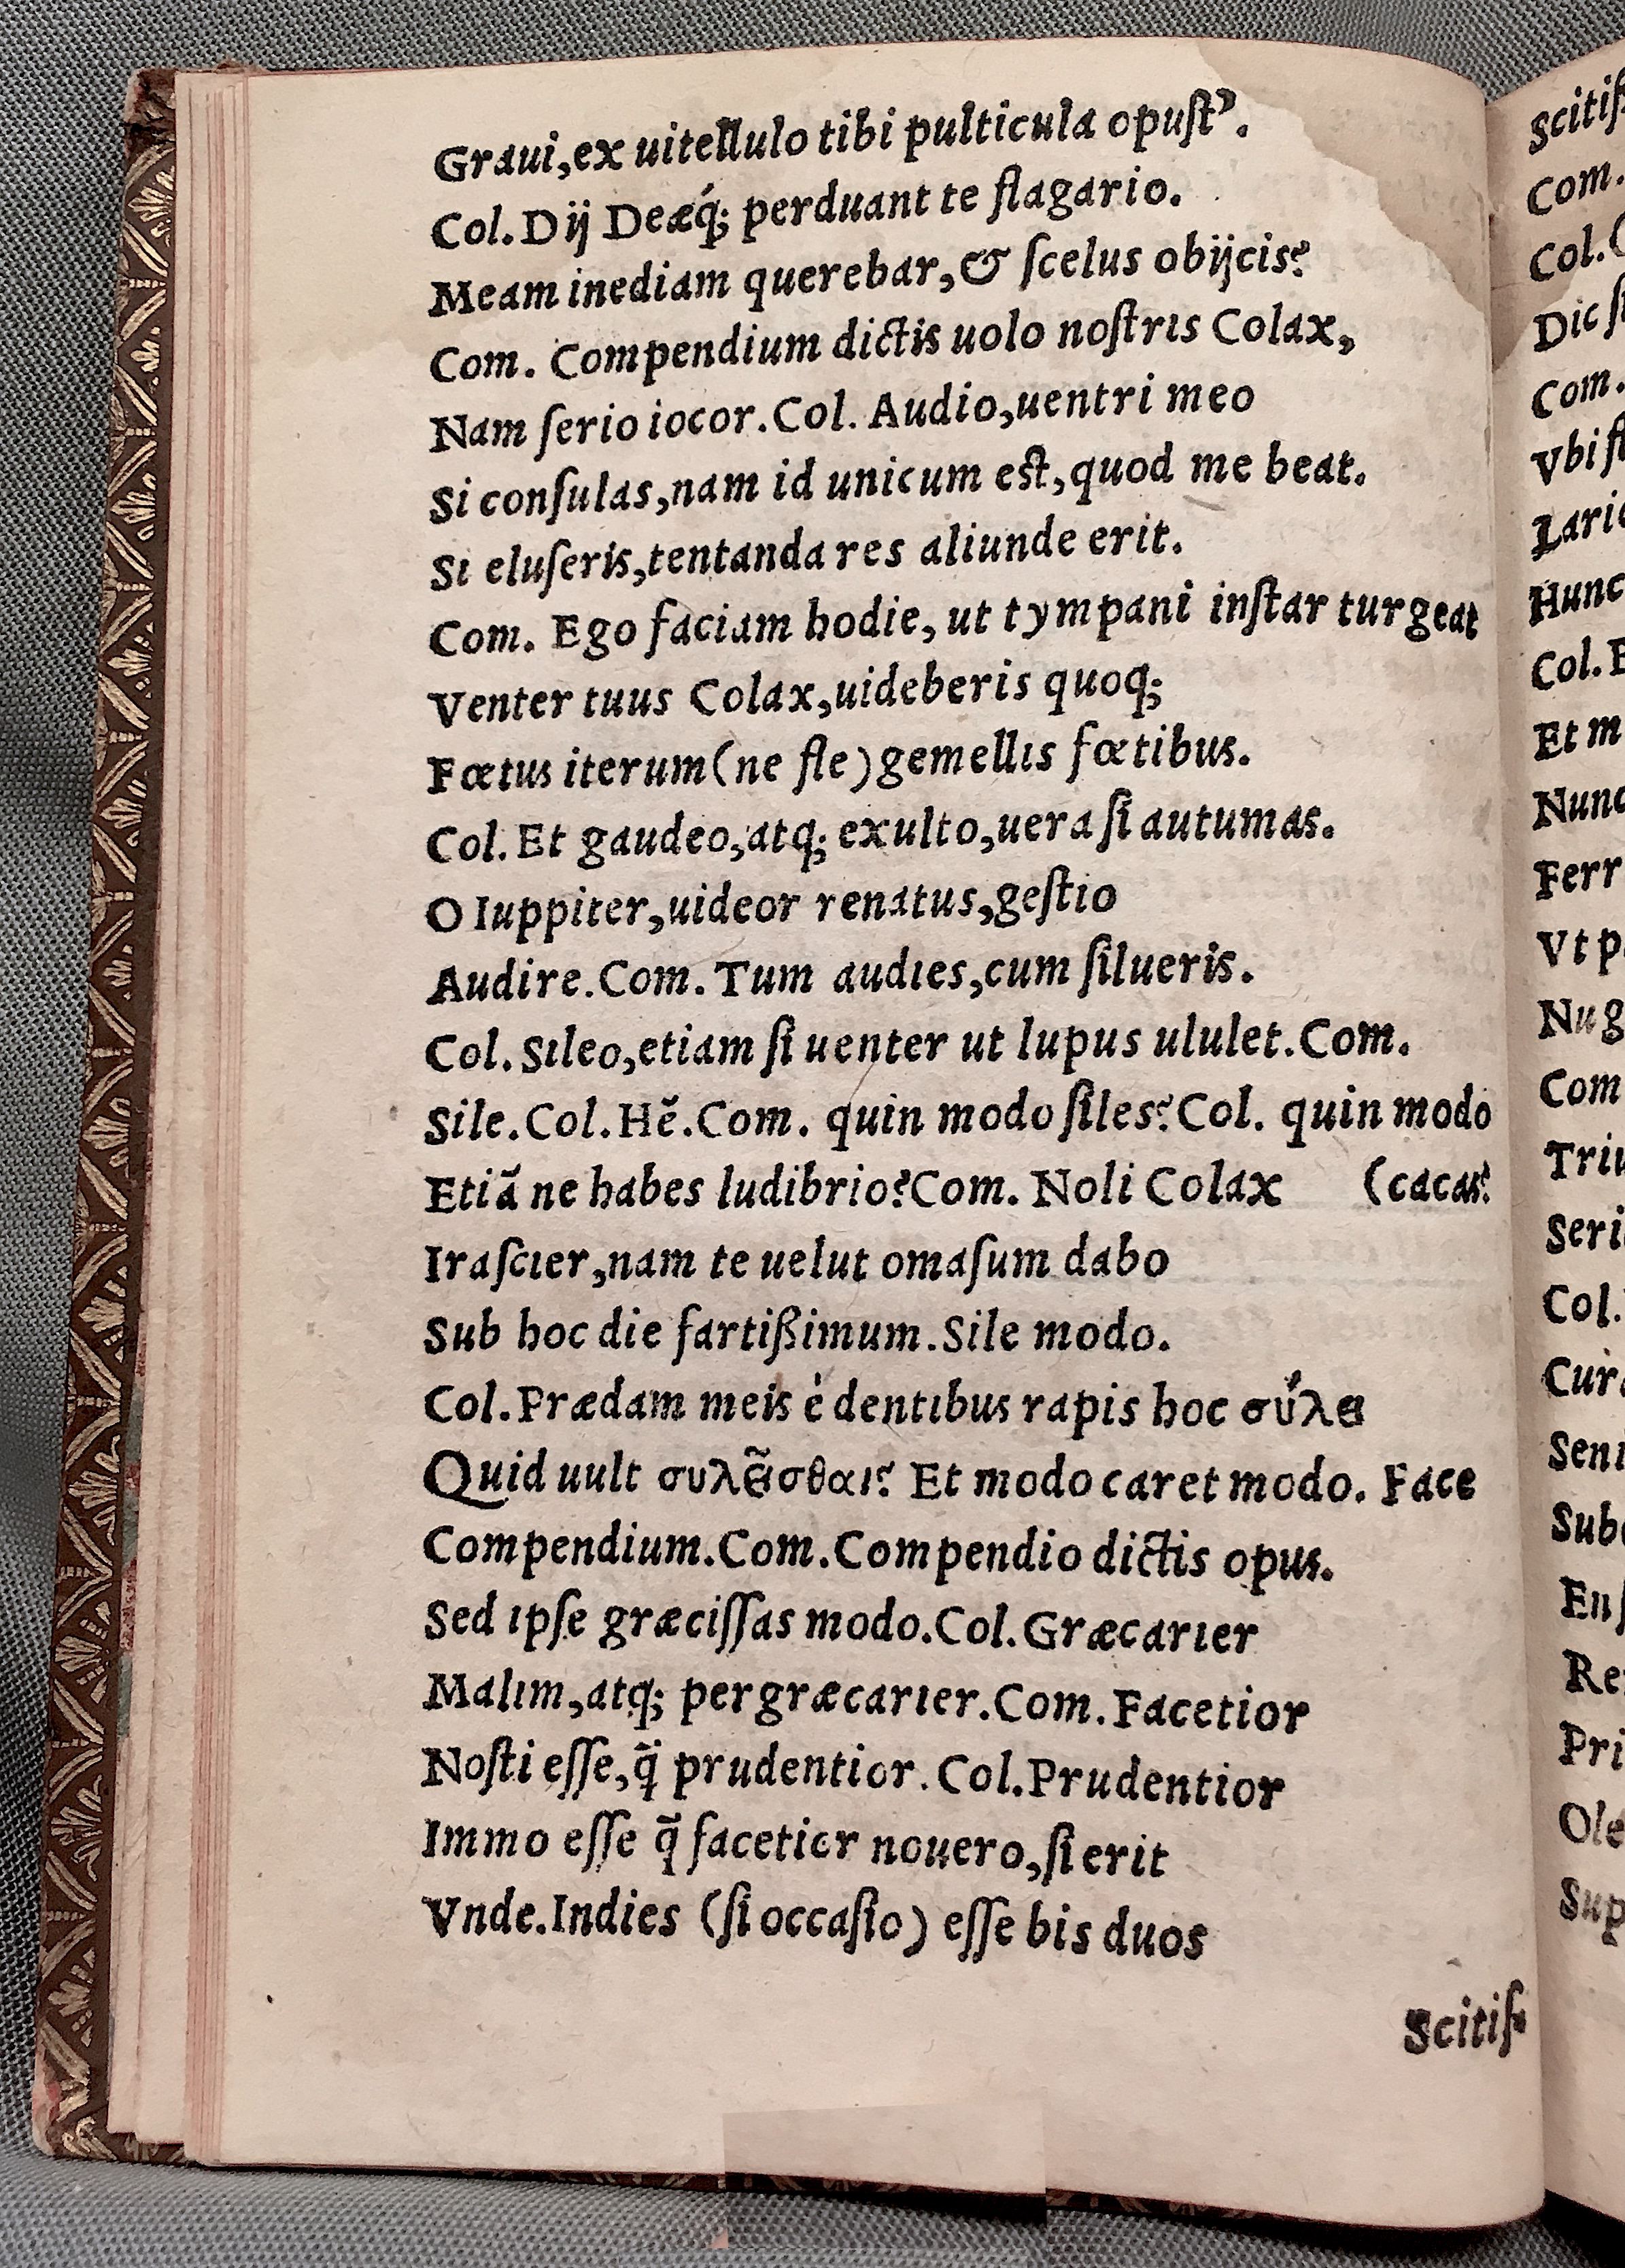 Graui,ex uitellulo tibi pulticula opuſt'.
Col.Dij Deæq́; perduant te flagario.
Meam inediam querebar,& ſcelus obijcis?
Com. Compendium dictis uolo noſtris Colax,
Nam ſerio iocor.Col. Audio,uentri meo
Si conſulas,nam id unicum eſt,quod me beat.
Si eluſeris,tentanda res aliunde erit.
Com. Ego faciam hodie, ut tympani inſtar turgeat
Venter tuus Colax,uideberis quoq;
Fœtus iterum(ne fle)gemellis fœtibus.
Col. Et gaudeo,atq; exulto,uera ſi autumas.
O Iuppiter,uideor renatus,geſtio
Audire.Com. Tum audies,cum ſilueris.
Col. Sileo,etiam ſi uenter ut lupus ululet.Com.
Sile.Col.Hẽ.Com. quin modo ſiles?Col. quin modo
Etiã ne habes ludibrio?Com. Noli Colax (cacas?
Iraſcier,nam te uelut omaſum dabo
Sub hoc die fartißimum.Sile modo.
Col.Prædam meis è dentibus rapis hoc σύλει
Quid uult συλεῖσθαι? Et modo caret modo. Face
Compendium.Com.Compendio dictis opus.
Sed ipſe græciſſas modo.Col.Græcarier
Malim,atq; pergræcarier.Com.Facetior
Noſti eſſe,q̃ prudentior. Col.Prudentior
Immo eſſe q̃ facetior nouero,ſi erit
Vnde.Indies (ſi occaſio) eſſe bis duos
Scitiſ-
Com.
Dic
Com.
Hunc
Et m
Nunc
Ferr
Vt p
Nug
Com
Triu
Seri
Col.
Cura
Seni
Pri
Ole
Sup